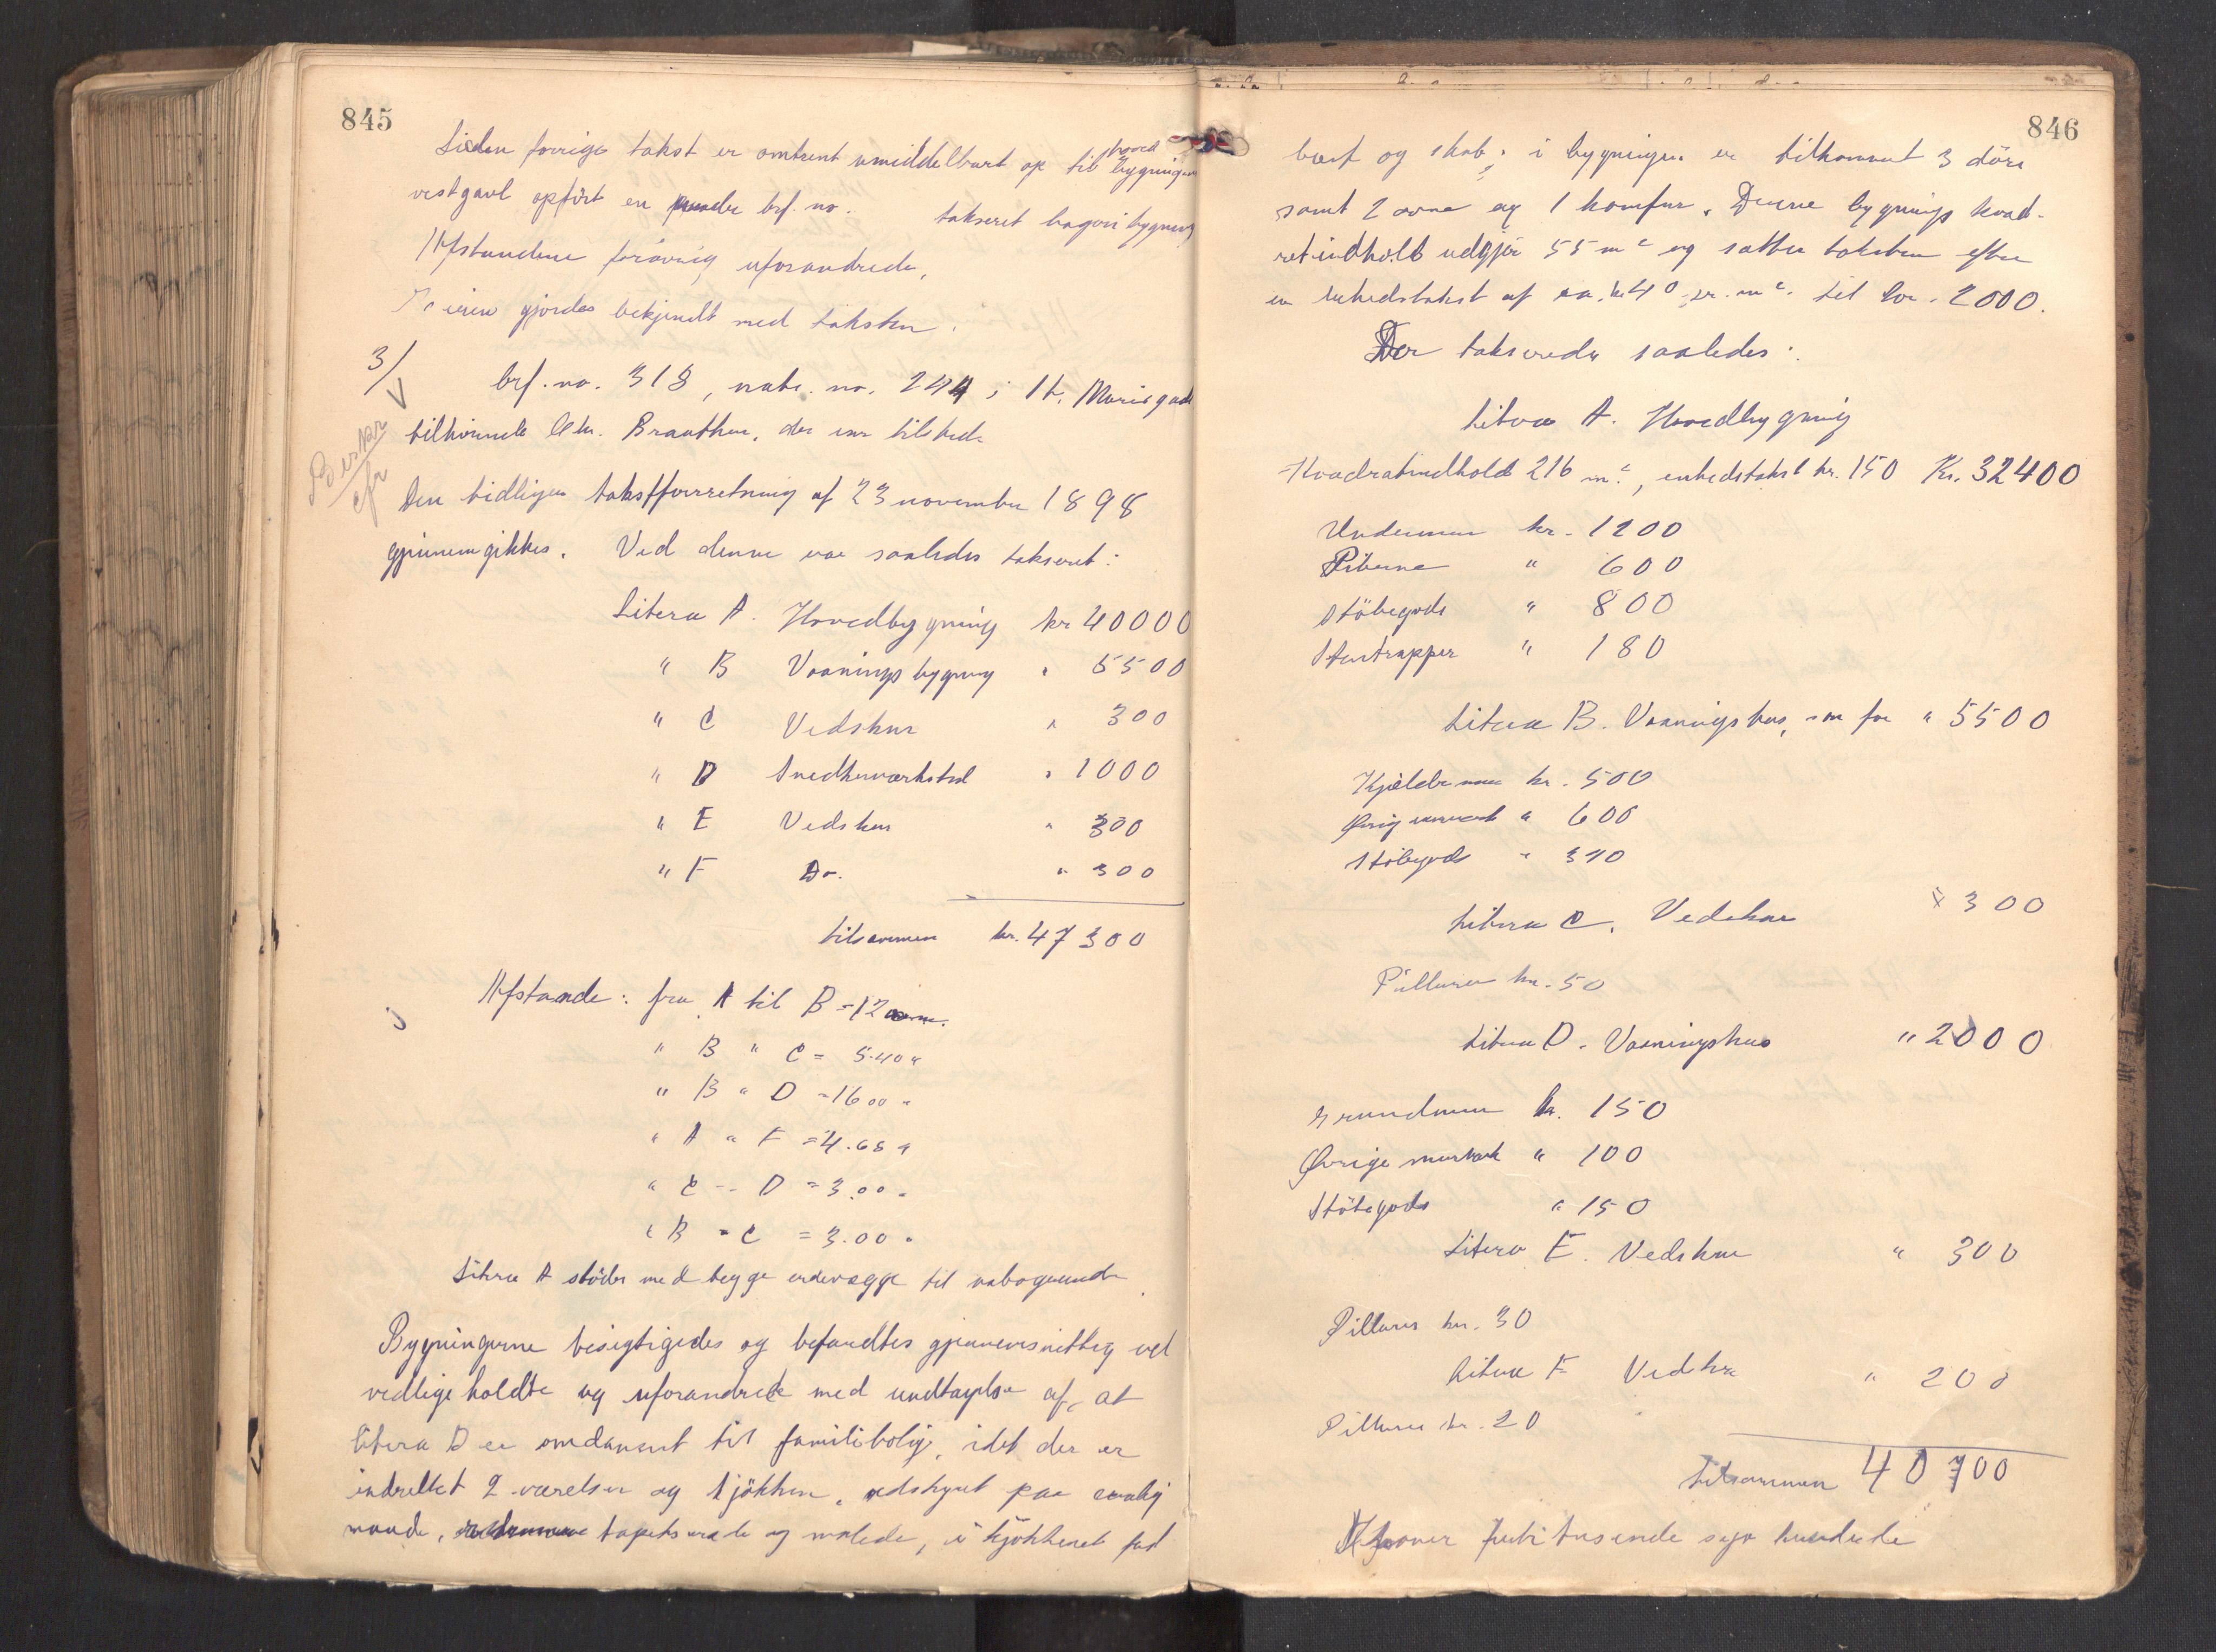 845
Siden forrige takst er omtrent umiddelbart op til hoved bygningens
vestgavl opført en under brf. no. takseret bageri bygning
Afstandene forøvrig uforandrede.
Eieren gjordes bekjendt med taksten.
3/
brf. no. 318, matr. no. 244 i St. Mariegade
tilhørende Chr. Braathen, der var tilstede
Den tidligere takstforretning af 23 november 1898
gjennemgikkes. Ved denne var saaledes takseret:
Litera A. Hovedbygning kr 40000
" B Vaaningsbygning " 5500
" C Vedskur " 300
" D Snedkerværksted " 1000
" E Vedskur " 300
" F Do. " 300
tilsammen kr. 47300
Afstande: fra A til B = 12
" B " C = 5.40 "
" B " D = 16.00 "
" A " F = 4.65 "
" C - D = 3.00 "
" B - C = 3.00 "
Litra A støder med begge endevægge til nabogrunde.
Bygningerne besigtigedes og befandtes gjennemsnitlig vel
vedligeholdte og uforandrede med undtagelse af, at
litera D er omdannet til familiebolig, idet der er
indrettet 2 værelser og kjøkken, udstyret paa vanlig
maade, tapetserede og malede, i kjøkkenet fad
846
benk og skab; i bygningen er tilkommet 3 døre
samt 2 ovne og 1 komfur. Denne bygnings kvad-
ratindhold udgjør 55 m² og sattes taksten efter
en enhedstakst af ca. kr 40 pr. m² til kr. 2000.
Der takseredes saaledes:
Litera A. Hovedbygning
Kvadratindhold 216 m², enhedstakst kr. 150 Kr. 32400
Undermur kr. 1200
Piberne " 600
Støbegods " 800
Stentrapper " 180
Litera B. Vaaningshus, som før " 5500
Kjældermur kr. 500
Øvrig murværk " 600
Støbegods " 310
Litera C. Vedskur " 300
Pillarer kr. 50
Litera D. Vaaningshus " 2000
Grundmur kr. 150
Øvrige murværk " 100
Støbegods " 150
Litera E. Vedskur " 300
Pillarer kr. 30
Litera F Vedskur " 200
Pillarer kr. 20
tilsammen 40700
Kroner førti tusende syv hundrede